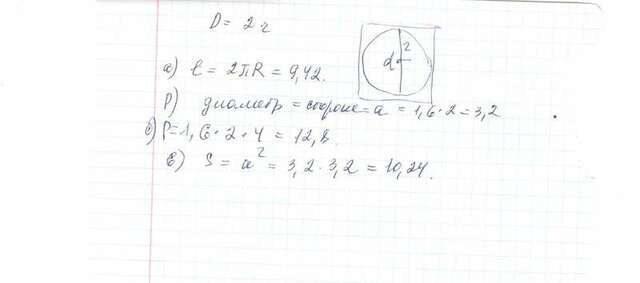 D = 2 r
d 2
а) ℓ = 2πR = 9,42.
P) диаметр = стороне = a = 1,6 · 2 = 3,2
б) P = 1,6 · 2 · 4 = 12,8.
в) S = a² = 3,2 · 3,2 = 10,24.